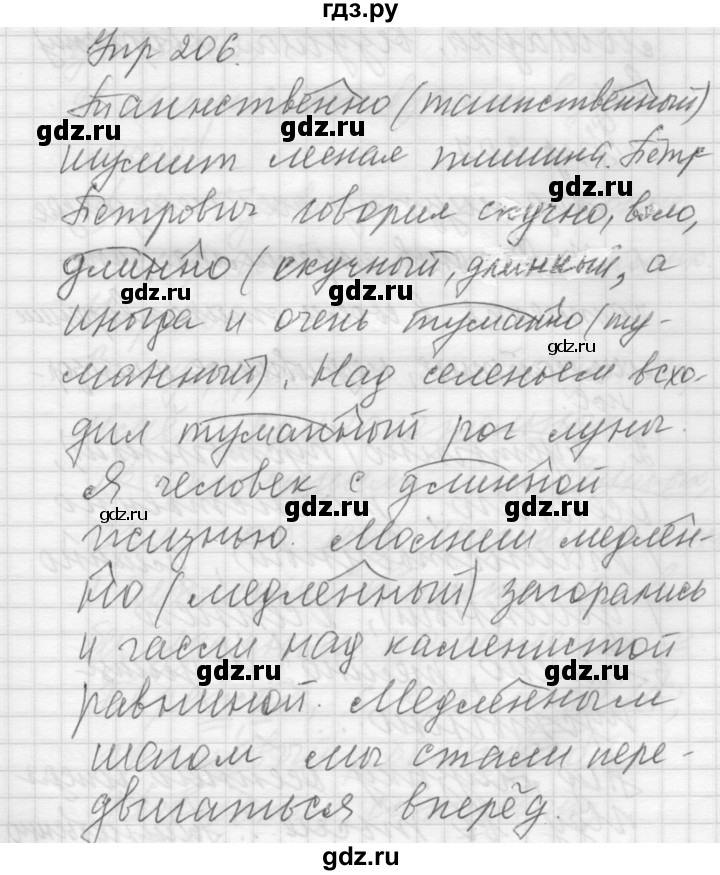 гдз.ру
Упр 206.
Таинственно (таинственный)
gdz.ru gdz.ru
шумит лесная тишина. Пётр
gdz.ru
Петрович говорил скучно, вяло,
длинно (скучный, длинный, а
gdz.ru gdz.ru
иногда и очень туманно (ту-
gdz.ru
манный). Над селеньем всхо-
дил туманный рог луны.
Я человек с длинной
gdz.ru gdz.ru gdz.ru
жизнью. Молнии медлен-
но (медленный) загорались
и гасли над каменистой
gdz.ru gdz.ru
равниной. Медленным
шагом мы стали пере-
двигаться вперёд.
gdz.ru